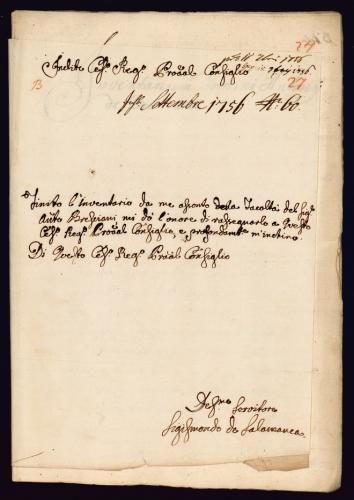 24
Inclito Ces:º Reg:º Prov̄al Consiglio
27
B
Settembre 1756 Nº: 60.
Finito l'Inventario da me assonto della Facoltà del Sig:
Ant:o Bresciani mi dò l'onore di rassegnarlo a Questo
Ces:º Reg:º Prov̄al Consiglio, e profondam:te m'inchino.
Di Questo Ces:º Reg:º Prov̄al Consiglio
Servitore
Sigismondo de Salamanca